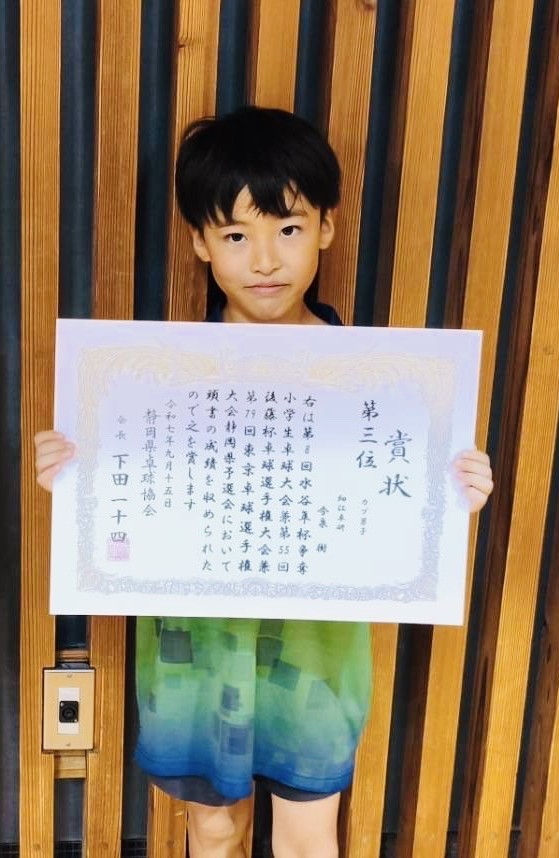 賞状
第三位
カブ男子
細江卓研
今泉 樹
右は第8回水谷隼杯争奪
小学生卓球大会兼第55回
後藤杯卓球選手権大会兼
第79回東京卓球選手権
大会静岡県予選会において
頭書の成績を収められた
ので之を賞します
令和七年九月十五日
静岡県卓球協会
会長 下田一十四